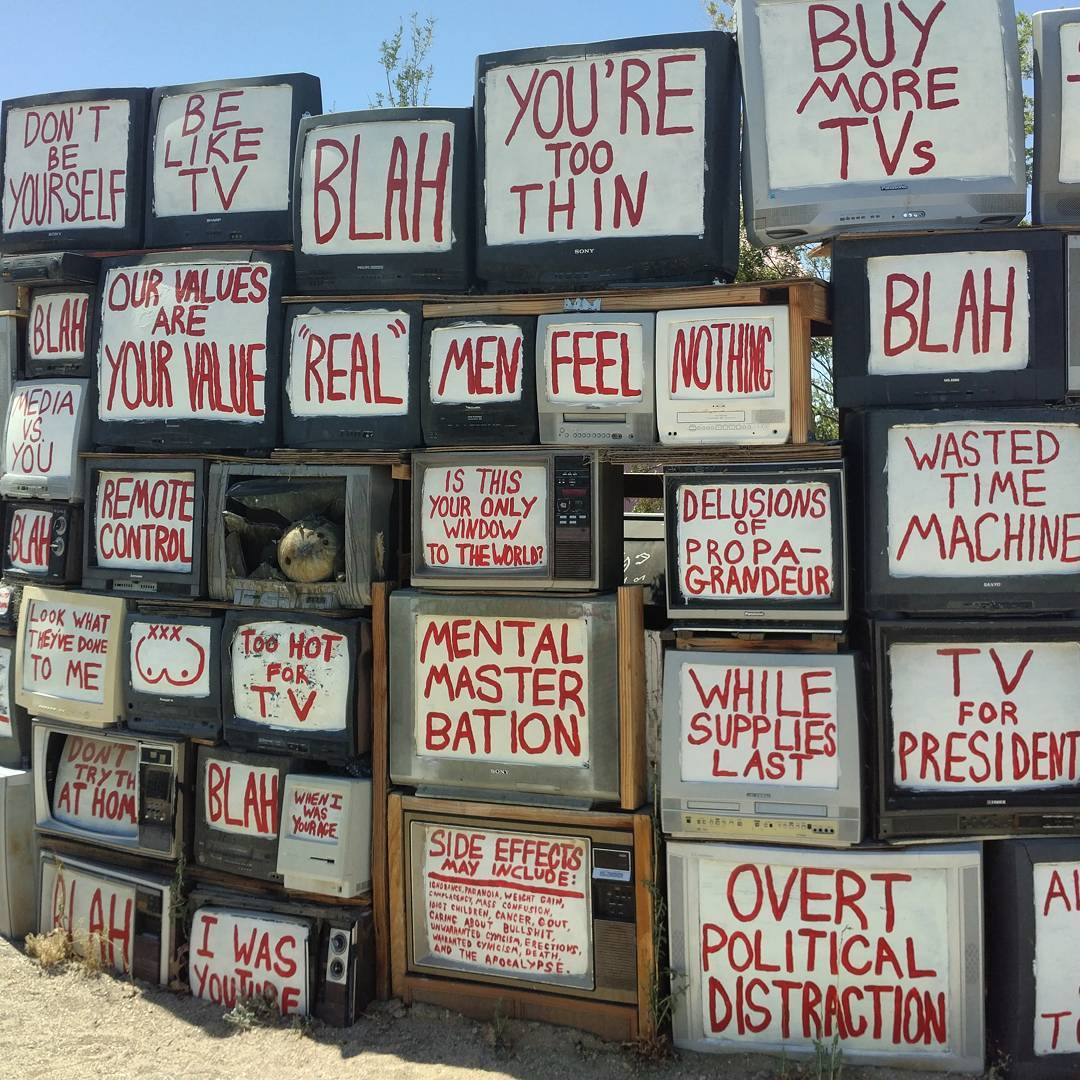 DON'T
BE
YOURSELF
SONY
BE
LIKE
TV
SHARP
BLAH
YOU'RE
TOO
THIN
SONY
BUY
MORE
TVs
Panasonic
BLAH
OUR VALUES
ARE
YOUR VALUE
"REAL"
MEN
FEEL
NOTHING
BLAH
MEDIA
VS.
YOU
BLAH
REMOTE
CONTROL
IS THIS
YOUR ONLY
WINDOW
TO THE WORLD?
DELUSIONS
OF
PROPA-
GRANDEUR
WASTED
TIME
MACHINE
SANYO
LOOK WHAT
THEY'VE DONE
TO ME
XXX
TOO HOT
FOR
TV
MENTAL
MASTER
BATION
SONY
WHILE
SUPPLIES
LAST
TV
FOR
PRESIDENT
DON'T
TRY TH
AT HOM
BLAH
WHEN I
WAS
YOUR AGE
SIDE EFFECTS
MAY INCLUDE:
IGNORANCE, PARANOIA, WEIGHT GAIN,
COMPLACENCY, MASS CONFUSION,
IDIOT CHILDREN, CANCER, GOUT,
CARING ABOUT BULLSHIT,
UNWARRANTED CYNICISM, ERECTIONS,
WARRANTED CYNICISM, DEATH,
AND THE APOCALYPSE.
OVERT
POLITICAL
DISTRACTION
BLAH
I WAS
YOUTUBE